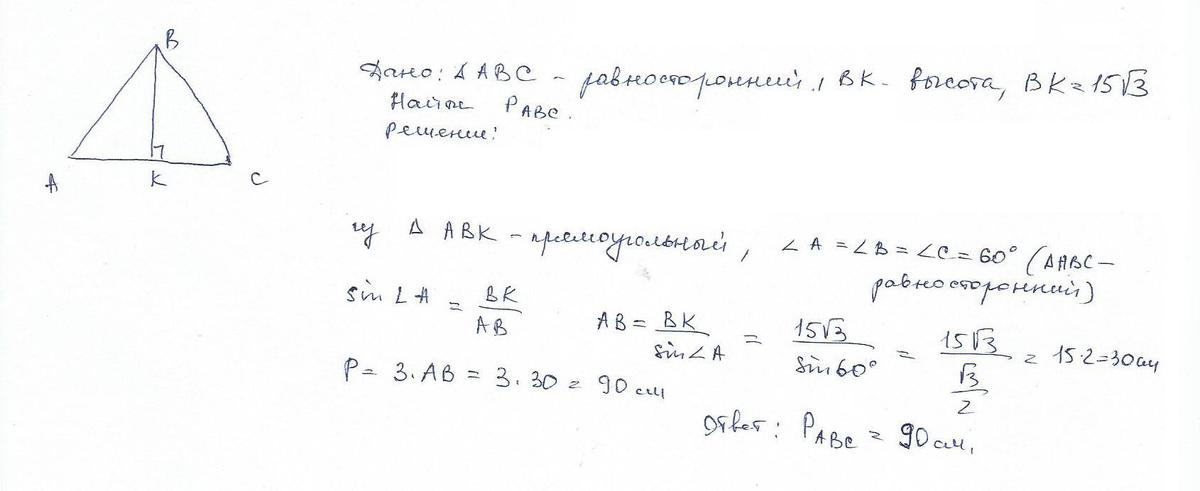 B
A K C
Дано: Δ ABC - равносторонний, BK - высота, BK = 15√3
Найти P_ABC.
Решение:
из Δ ABK - прямоугольный, ∠A = ∠B = ∠C = 60° (ΔABC - равносторонний)
sin∠A = BK/AB AB = BK/sin∠A = 15√3/sin60° = 15√3/(√3/2) = 15·2=30см
P = 3·AB = 3·30 = 90 см
Ответ: P_ABC = 90 см.